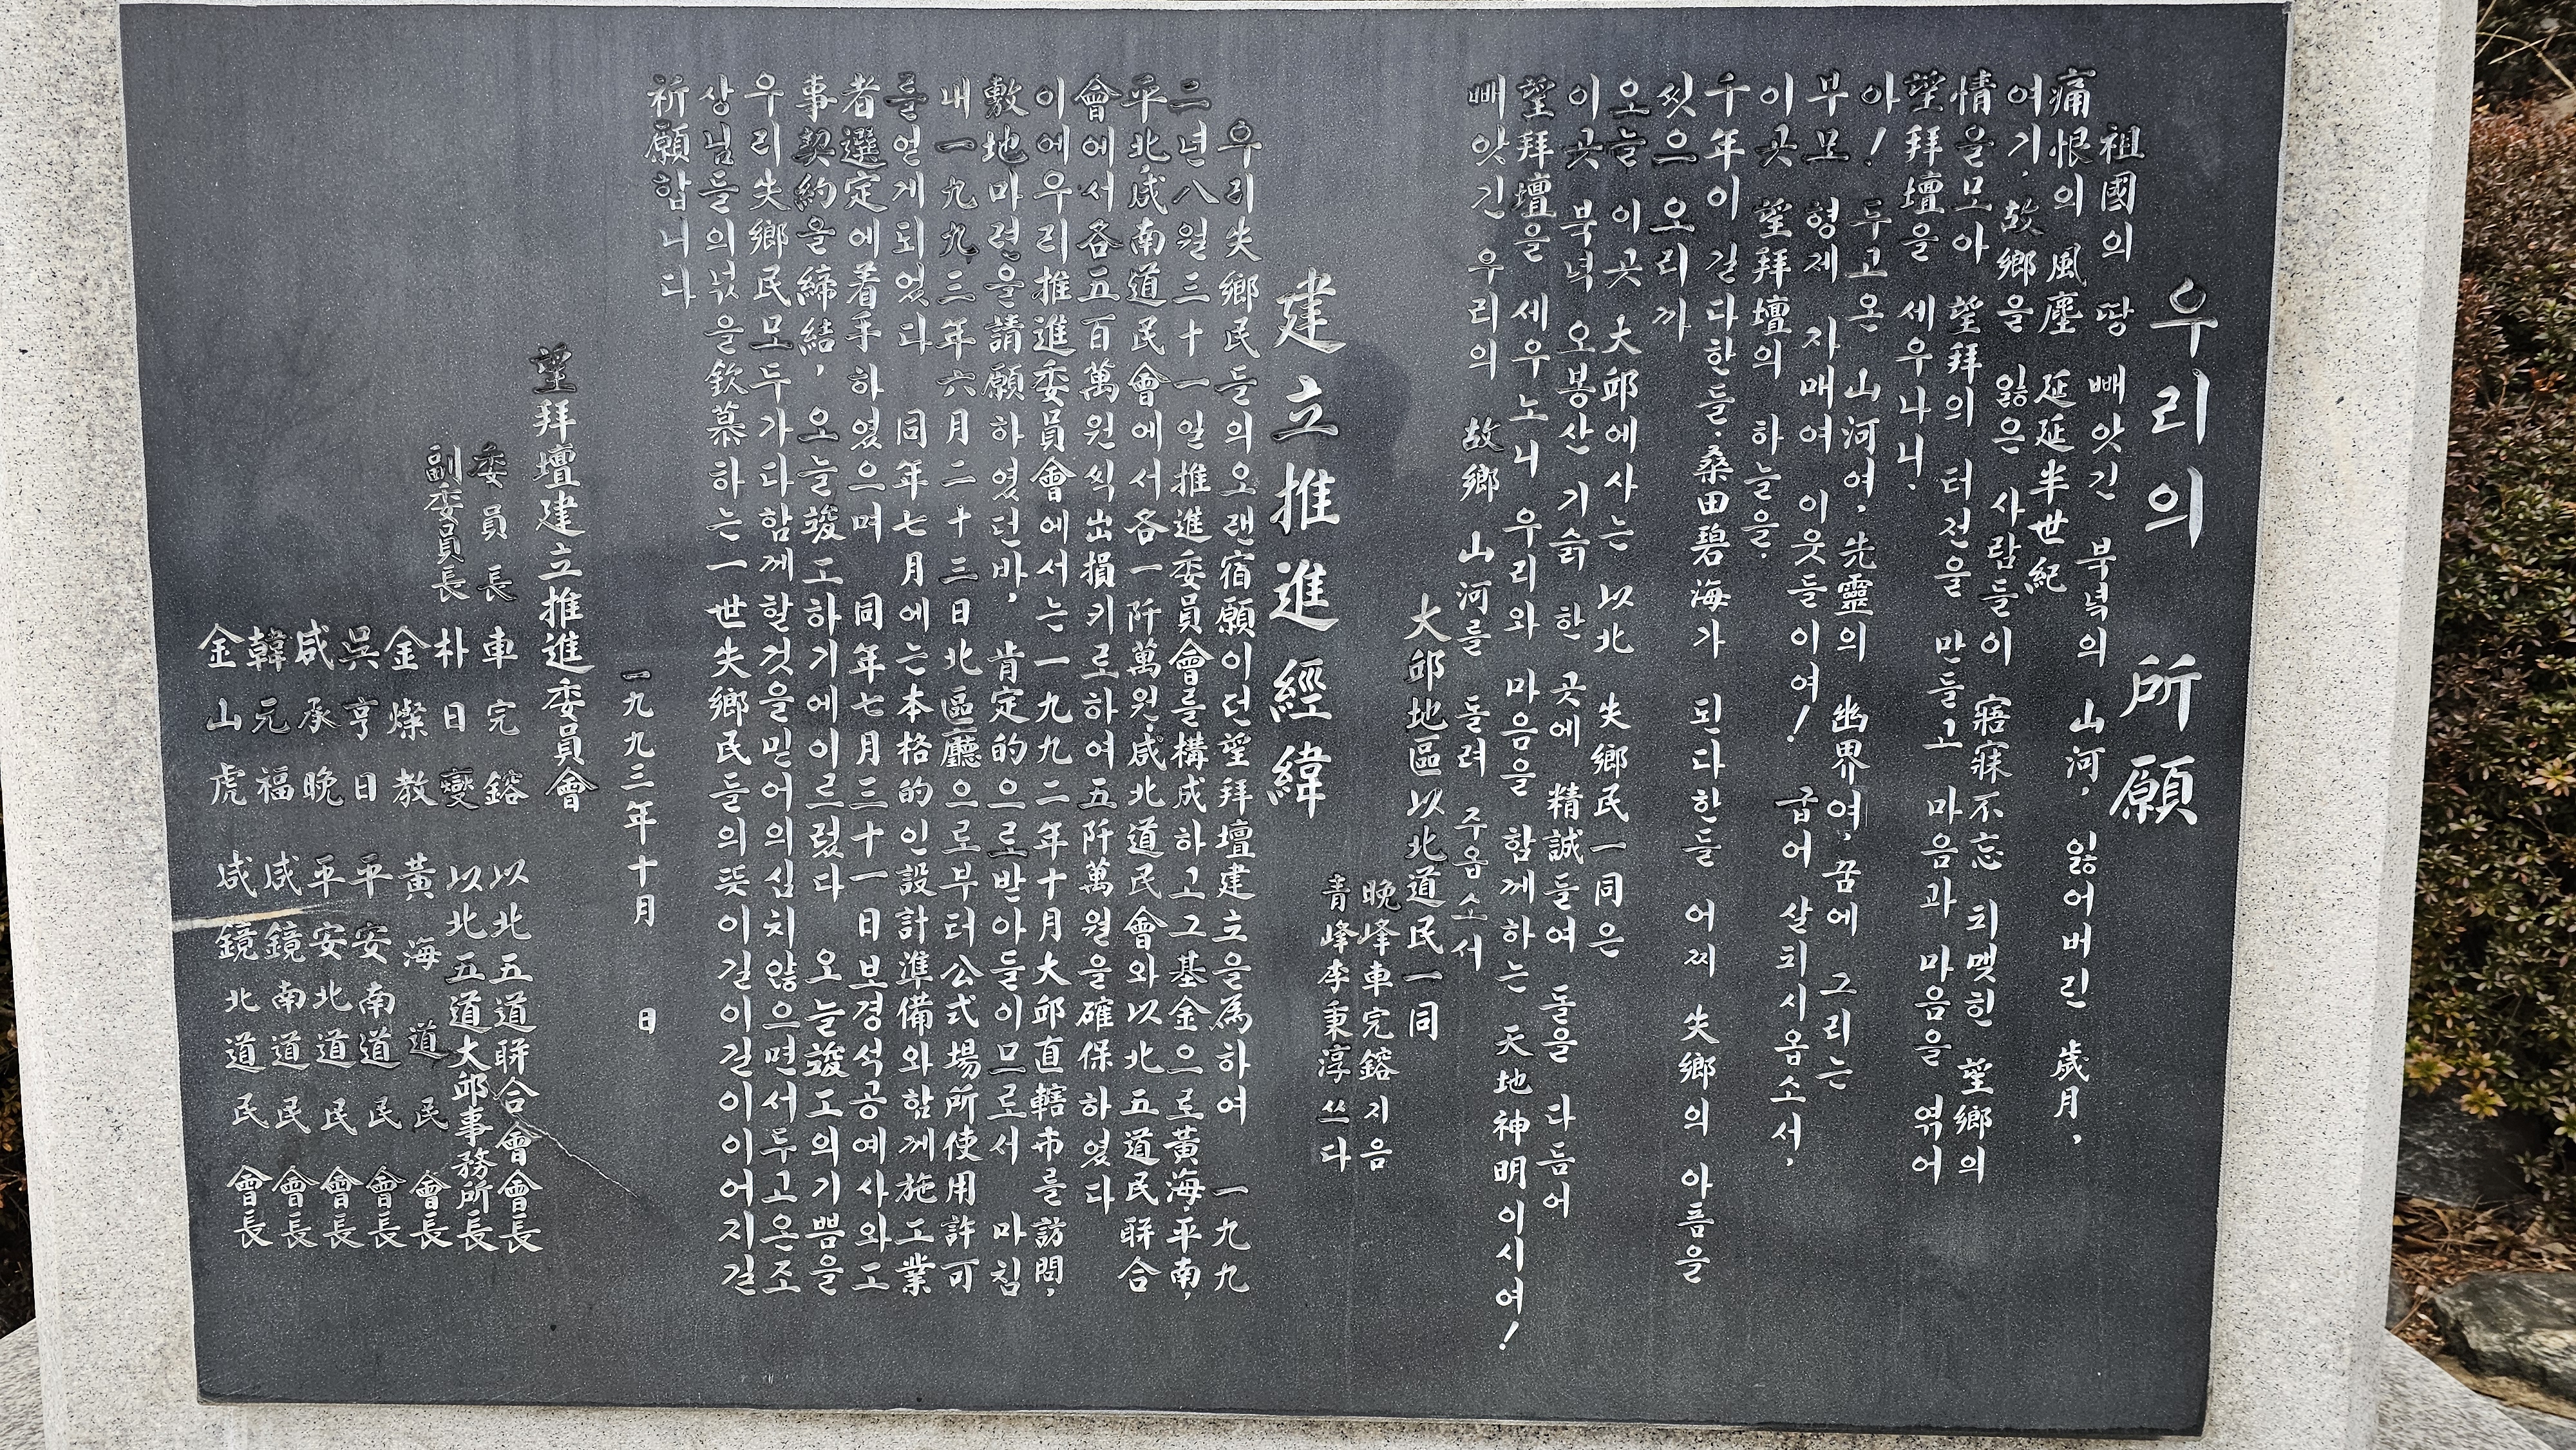 우리의 所願
祖國의 땅 빼앗긴 북녘의 山河, 잃어버린 歲月,
痛恨의 風塵 延延半世紀
여기, 故鄉을 잃은 사람들이 寤寐不忘 되맺힌 望鄉의
情을모아 望拜의 터전을 만들고 마음과 마음을 엮어
望拜壇을 세우나니.
아! 두고온 山河여, 先靈의 幽界여, 꿈에 그리는
부모 형제 자매여 이웃들이여! 굽어 살피시옵소서,
이곳 望拜壇의 하늘을.
千年이 긴다한들, 桑田碧海가 된다한들 어찌 失鄉의 아픔을
씻으오리까
오늘 이곳 大邱에사는 以北 失鄉民一同은
이곳 북녘 오봉산 기슭 한 곳에 精誠들여 돌을 다듬어
望拜壇을 세우노니 우리와 마음을 함께하는 天地神明이시여!
빼앗긴 우리의 故鄉 山河를 돌려 주옵소서
大邱地區以北道民一同
晩峰車完鎔 지음
靑峰李秉淳 쓰다
建立推進經緯
우리失鄉民들의오랜宿願이던望拜壇建立을爲하여 一九九
二년八월三十一일推進委員會를構成하고그基金으로黃海,平南,
平北,咸南道民會에서各一阡萬원,咸北道民會와以北五道民聯合
會에서各五百萬원씩出損키로하여五阡萬원을確保하였다
이에우리推進委員會에서는一九九二年十月大邱直轄市를訪問,
敷地마련을請願하였던바, 肯定的으로받아들이므로서 마침
내一九九三年六月二十三日北區廳으로부터公式場所使用許可
를얻게되었다 同年七月에는本格的인設計準備와함께施工業
者選定에着手하였으며 同年七月三十一日보경석공예사와工
事契約을締結, 오늘竣工하기에이르렀다 오늘竣工의기쁨을
우리失鄉民모두가다함께할것을믿어의심치않으면서두고온조
상님들의넋을欽慕하는一世失鄉民들의뜻이길이길이이어지길
祈願합니다
一九九三年十月 日
望拜壇建立推進委員會
委員長 車完鎔 以北五道聯合會會長
副委員長 朴日燮 以北五道大邱事務所長
金燦敎 黃海道民會長
吳亨日 平安南道民會長
咸承晩 平安北道民會長
韓元福 咸鏡南道民會長
金山虎 咸鏡北道民會長